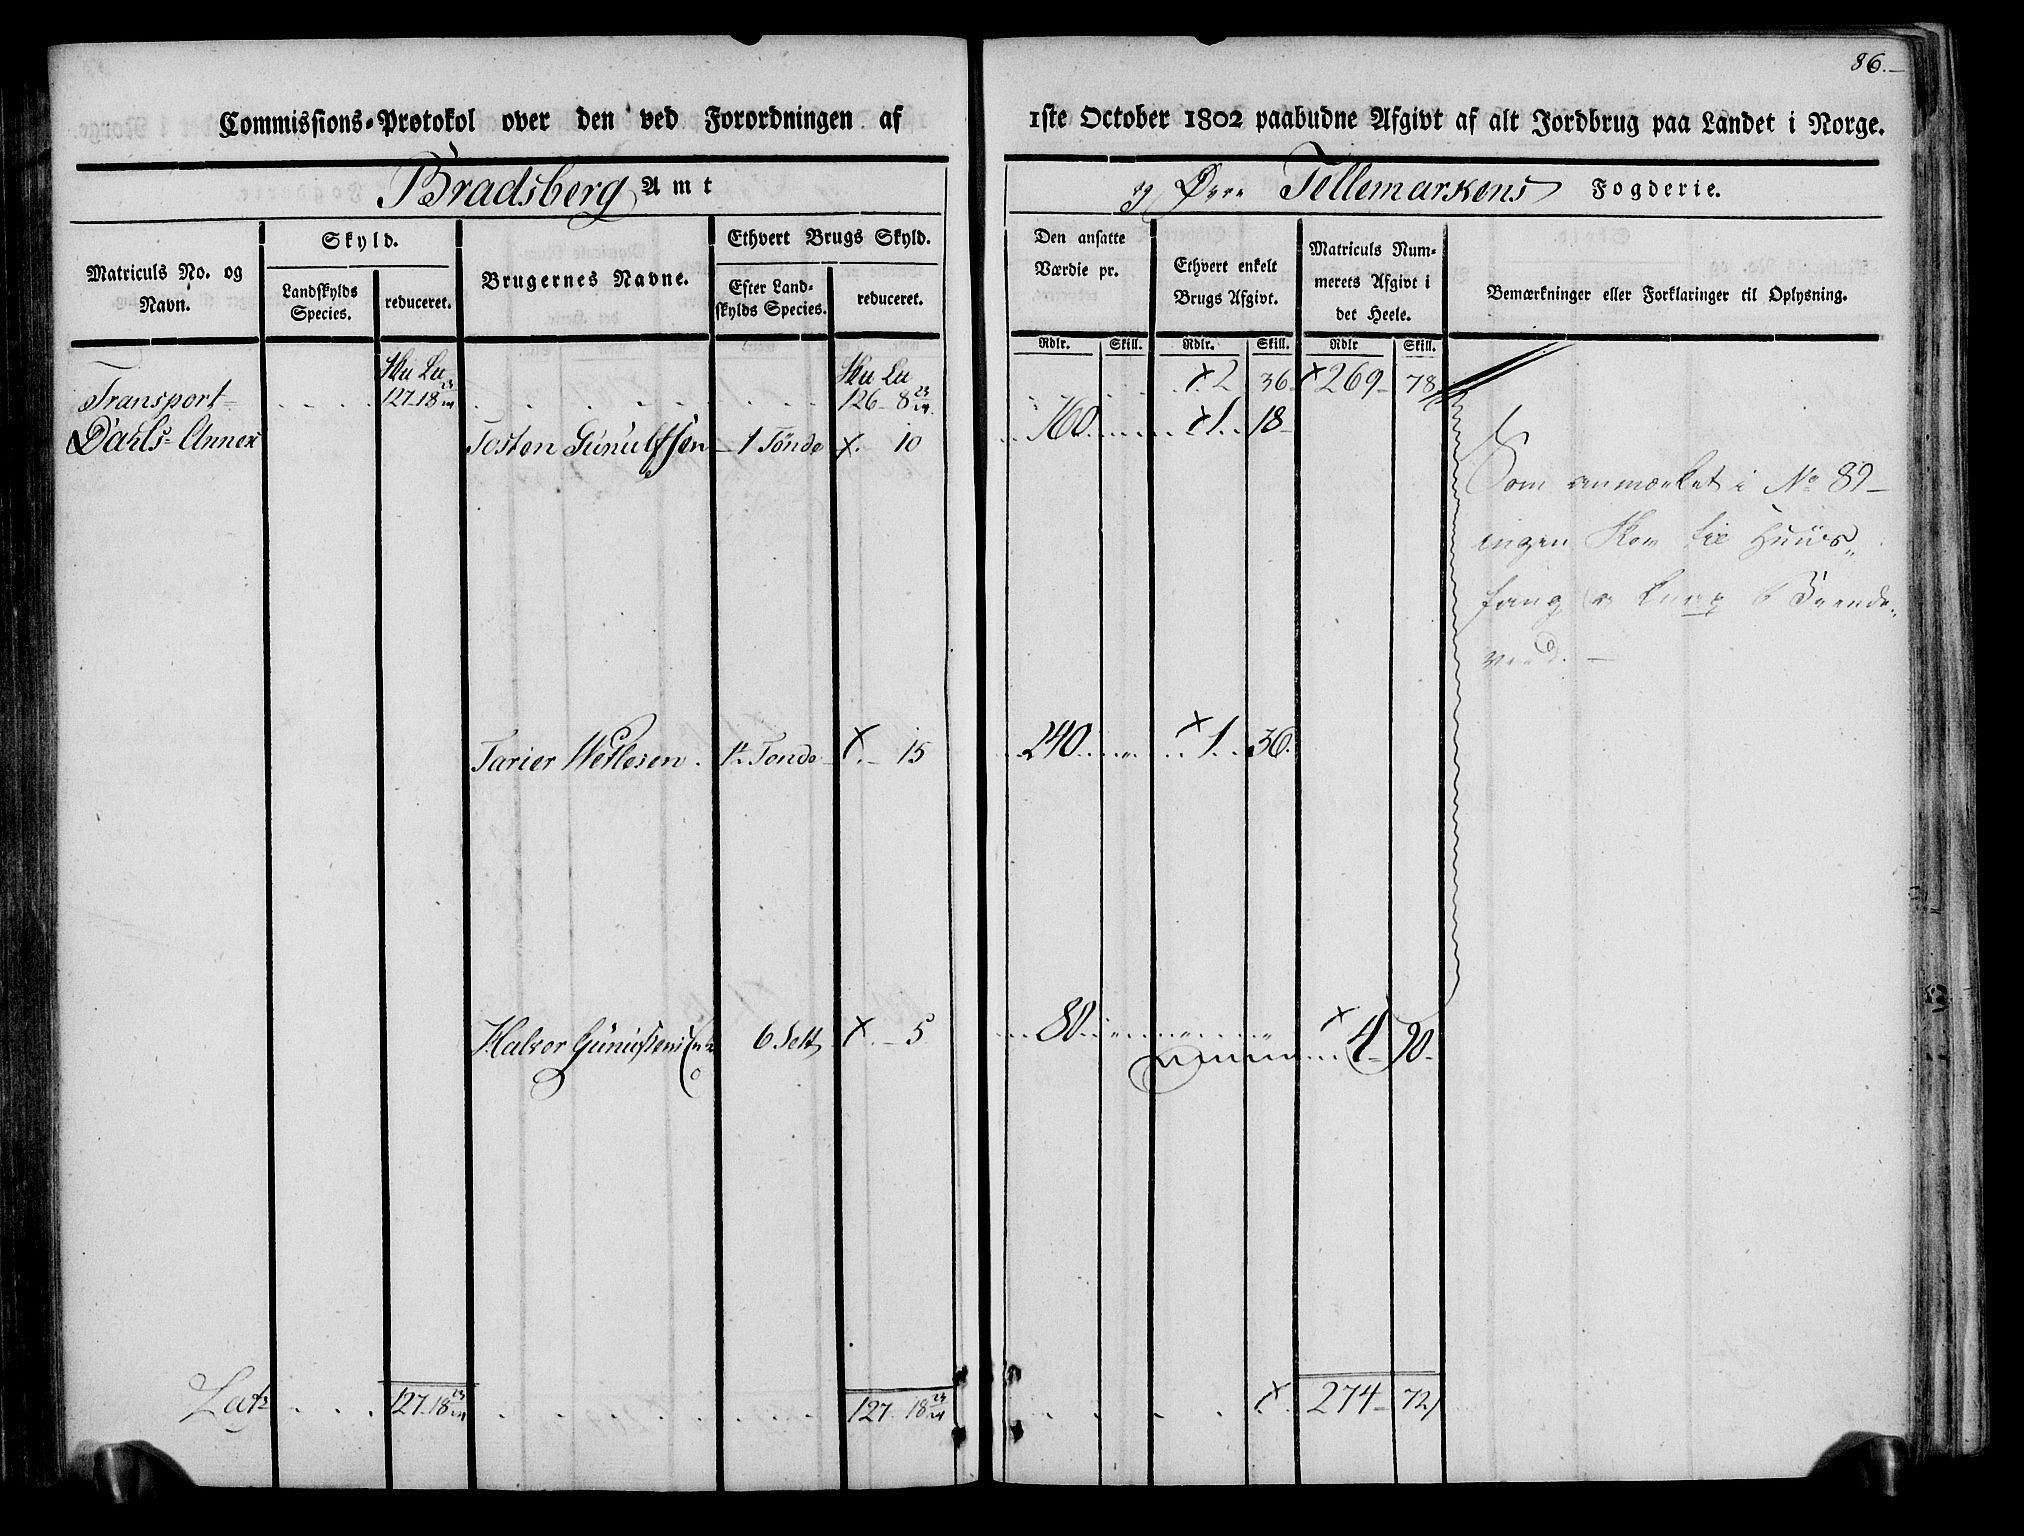 86.
Commissions-Protokol over den ved Forordningen af 1ste October 1802 paabudne Afgivt af alt Jordbrug paa Landet i Norge.
Bradsberg Amt og Øvre Tellemarkens Fogderie.
Matriculs No. og Navn.
Skyld.
Landskylds Species.
reduceret.
Brugernes Navne.
Ethvert Brugs Skyld.
Efter Landskylds Species.
reduceret.
Den ansatte Værdie pr.
Ethvert enkelt Brugs Afgivt.
Matriculs Nummerets Afgivt i det Heele.
Bemærkninger eller Forklaringer til Oplysning.
Rdlr. Skill. Rdlr. Skill. Rdlr Skill.
Hu Lu Hu Lu
Transport 127 18 23/24 126 8 23/24 x 2 36 x 269 78
Dahls Annex Tosten Gunulfsen 1 Tønde x 10 160 x 1 18
Som anmærket i No 89
ingen Hav til Huus
fang
Tarier Wetlesen 1½ Tønde x 15 240 x 1 36
Halvor Gunulfsens 6 Sett x 5 80 x 4 90
Lat 127 18 23/24 127 18 23/24 x 274 72